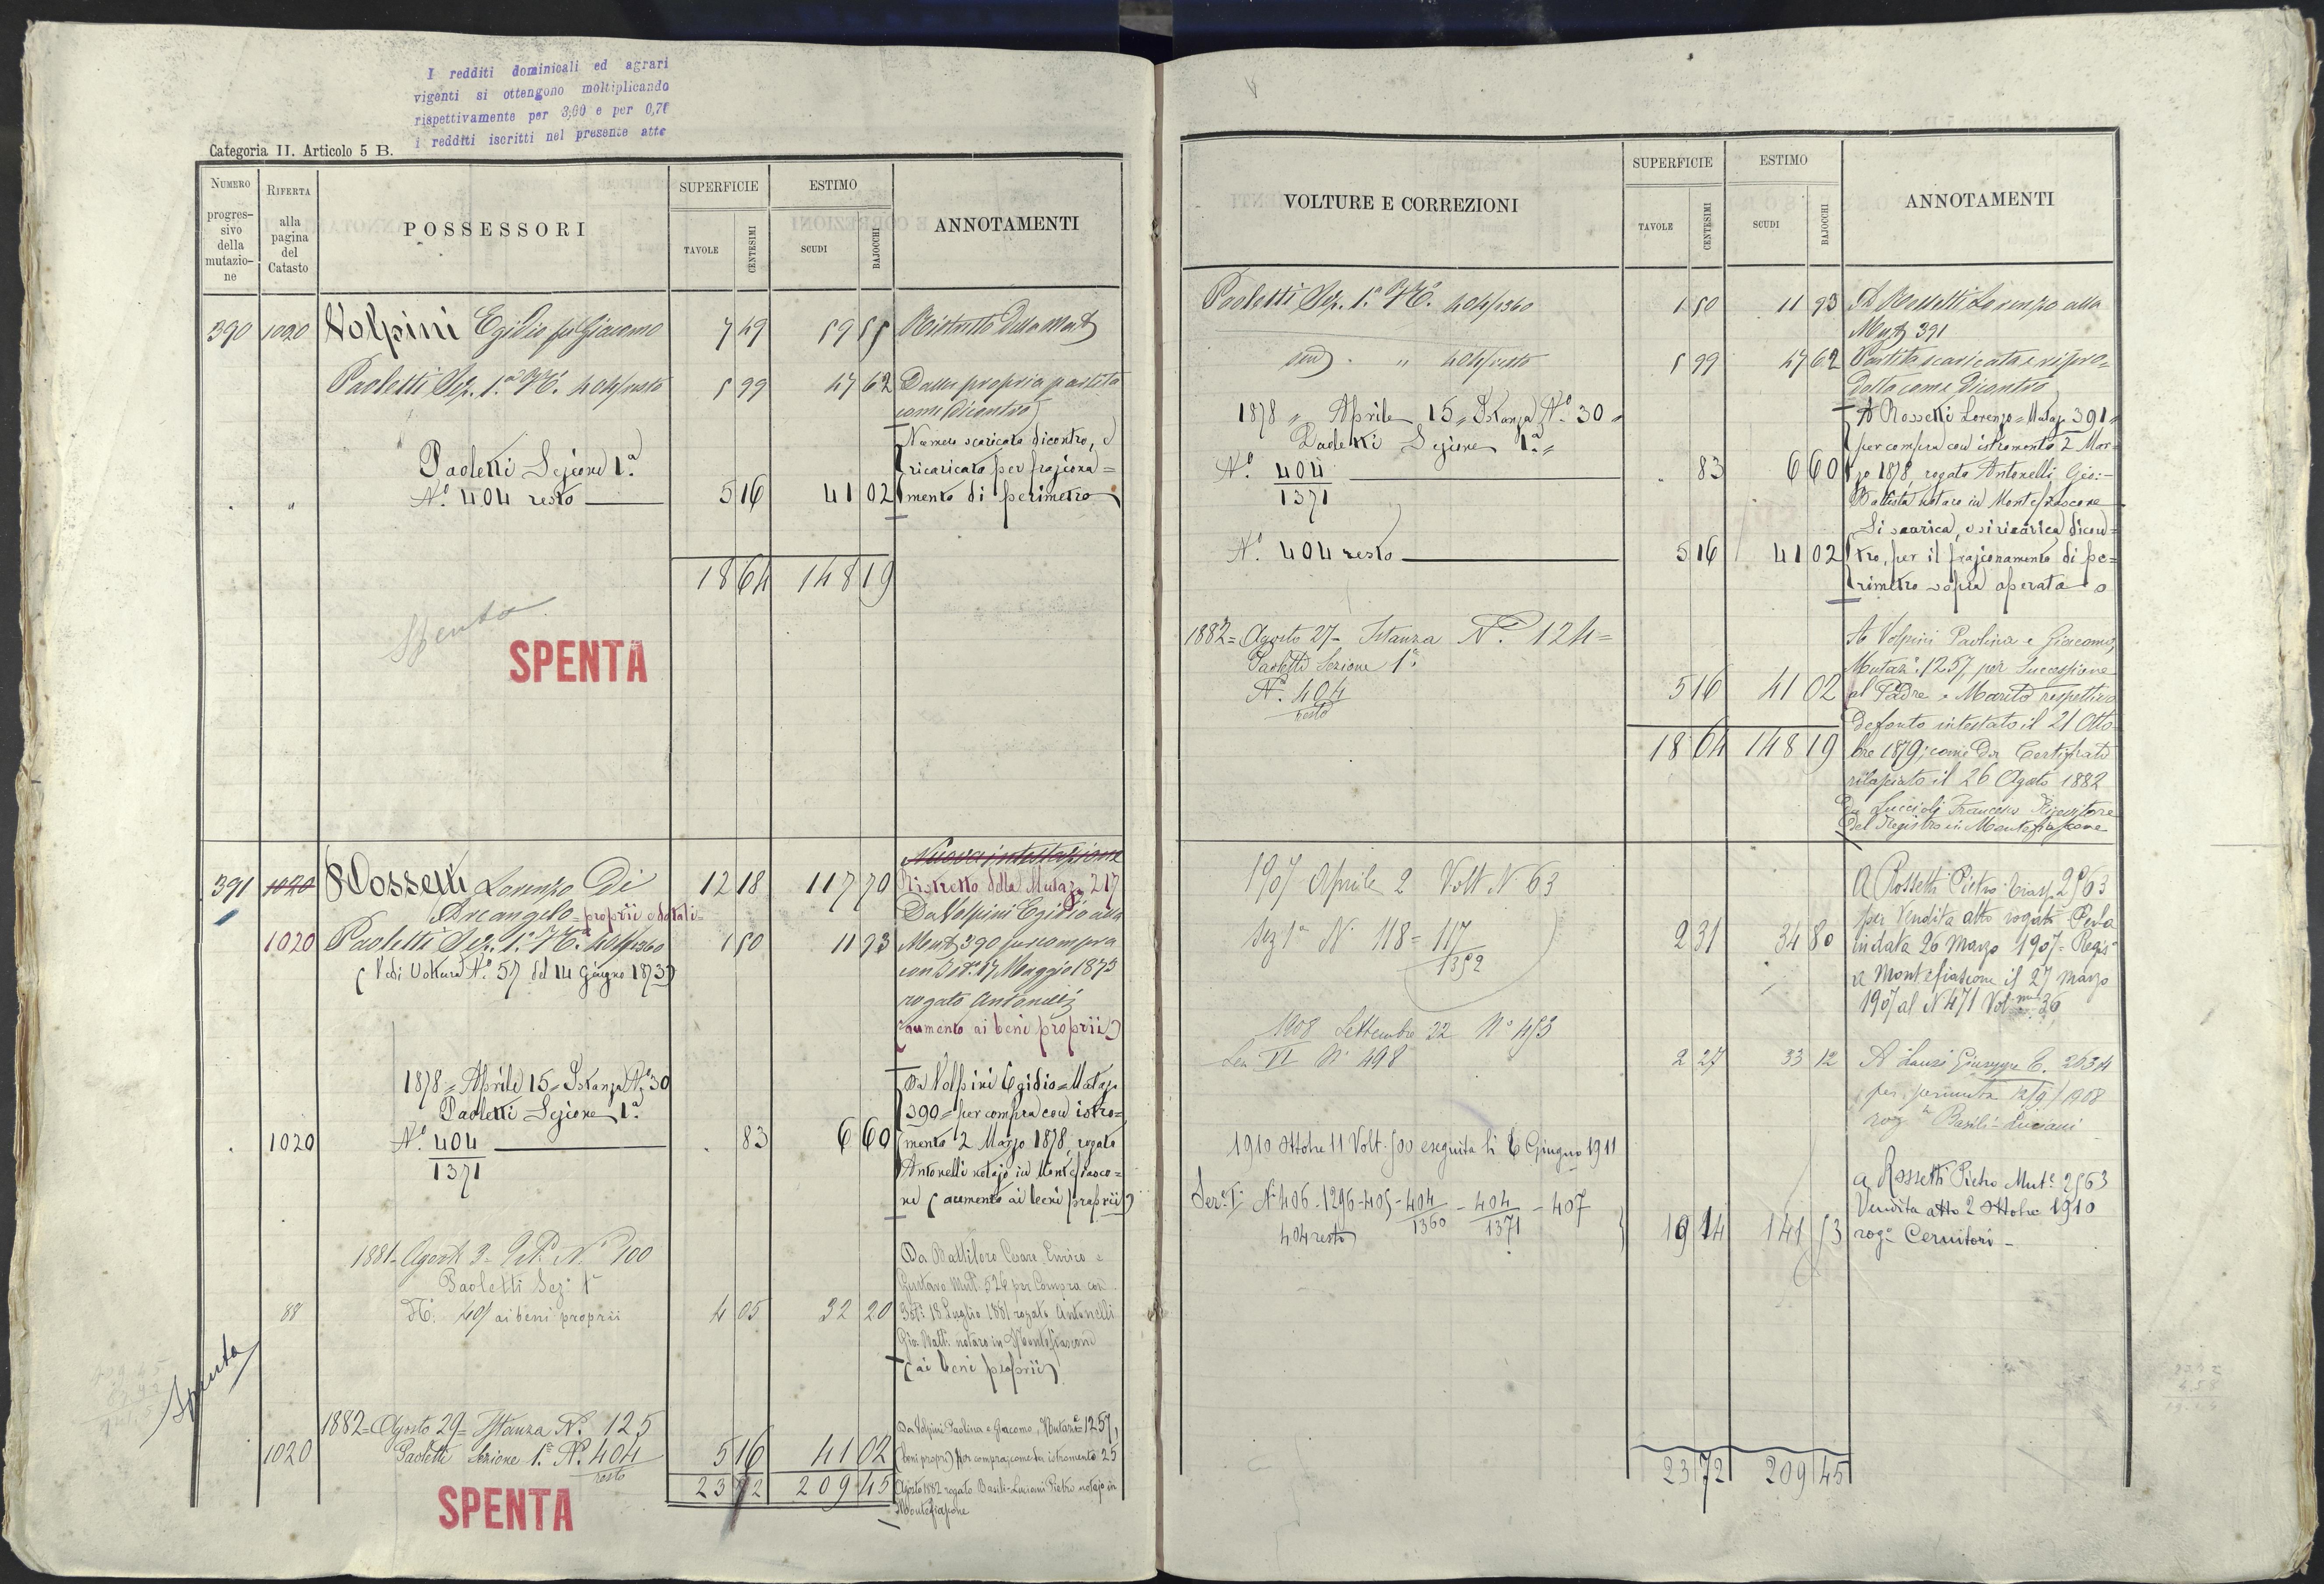 I redditi dominicali ed agrari
vigenti si ottengono moltiplicando
rispettivamente per 3,00 e per
i redditi iscritti nel presente atto
Categoria II. Articolo 5 B.
NUMERO progres-sivo della mutazio-ne
RIFERTA alla pagina del Catasto
POSSESSORI
SUPERFICIE
TAVOLE
CENTESIMI
ESTIMO
SCUDI
BAJOCCHI
ANNOTAMENTI
390 1020 Volpini Egidio fu Giacomo 7 49 59 55 Ristretto della Mut
Paoletti Sez. 1.a No. 404/resto 5 99 47 62 Dalla propria partita
come dicontro
Numero scaricato dicontro, e
Paoletti Sezione 1.a
ricaricato per fraziona=
" " No. 404 resto 5 16 41 02 mento di perimetro
18 64 148 19
Spenta
SPENTA
Nuova intestazione
391 1020 Rossetti Lorenzo di 12 18 117 70 Ristretto della Mutaz. 217
Arcangelo = proprii e dotali =
Da Volpini Egidio alla
1020 Paoletti Sez. 1.a No. 404/1360 1 50 11 93 Mut 390 per compra
(Vedi Voltura No. 57 del 14 Giugno 1873)
con Ist. 17 Maggio 1873
rogato Antonelli
(aumento ai beni proprii)
1878 = Aprile 15 = Istanza No. 30
Da Volpini Egidio = Mutaz.
Paoletti Sezione 1.a
390 = per compra con istro=
1020 No. 404/1371 83 6 60 mento 2 Marzo 1878, rogato
Antonelli notajo in Montefiasco=
ne (aumento ai beni proprii)
1881 = Agosto 3 = No. 100
Paoletti Sez. 1a
Da Battiloro Cesare Enrico e
Gustavo Mut. 526 per Compra con
88 No. 405 ai beni proprii 4 05 32 20 Ist. 18 Luglio 1881 rogato Antonelli
Gio. Batt. notaro in Montefiascone
(ai beni proprii)
Spenta
1882 = Agosto 29 = Istanza No. 125
Da Volpini Paolina e Giacomo, Mutaz. 1257,
1020 Paoletti Sezione 1.a No. 404/resto 5 16 41 02 (beni propri) per compra, come da istromento 25
23 72 209 45 Agosto 1882 rogato Basili-Luciani Pietro notajo in
Montefiascone
SPENTA
VOLTURE E CORREZIONI
SUPERFICIE
TAVOLE
CENTESIMI
ESTIMO
SCUDI
BAJOCCHI
ANNOTAMENTI
Paoletti Sez. 1.a No. 404/1360 1 50 11 93 A Rossetti Lorenzo alla
Mut 391
" 404/resto 5 99 47 62 Partita scaricata e ripro=
dotta come dicontro
1878 = Aprile 15 = Istanza No. 30 =
A Rossetti Lorenzo = Mutaz. 391 =
Paoletti Sezione 1.a =
per compra con istromento 2 Mar=
No. 404/1371 83 6 60 zo 1878, rogato Antonelli Gio: =
Battista notaro in Montefiascone
Si scarica, e si ricarica dicon=
No. 404 resto 5 16 41 02 tro, per il frazionamento di pe=
rimetro sopra operato
1882 = Agosto 27 = Istanza No. 124 =
A Volpini Paolina e Giacomo,
Paoletti Sezione 1.a
Mutaz. 1257, per successione
No. 404/resto 5 16 41 02 al Padre e Marito respettivo
Defonto intestato il 21 Otto=
18 64 148 19 bre 1879; come da Certificato
rilasciato il 26 Agosto 1882
Da Luccioli Francesco Ricevitore
del Registro in Montefiascone
1907 Aprile 2 Volt N 63
A Rossetti Pietro 2563
per Vendita atto rogato Perla
Sez 1a N. 118 = 117/1352 2 31 34 80 in data 26 Marzo 1907 = Regis
a Montefiascone il 27 marzo
1907 al N 471 Vol 36
1908 Settembre 22 No 453
Sez VI No 498 2 27 33 12 A Lanzi Giuseppe 2634
per permuta 12/9/1908
rog. Basili-Luciani
1910 Ottobre 11 Volt. 500 eseguita li 6 Giugno 1911
a Rossetti Pietro Mut. 2563
Sez. 1a N. 406 - 1296 - 405 - 404/1360 - 404/1371 - 407
Vendita atto 2 Ottobre 1910
404 resto 19 14 141 53 rog. Cernitori -
23 72 209 45